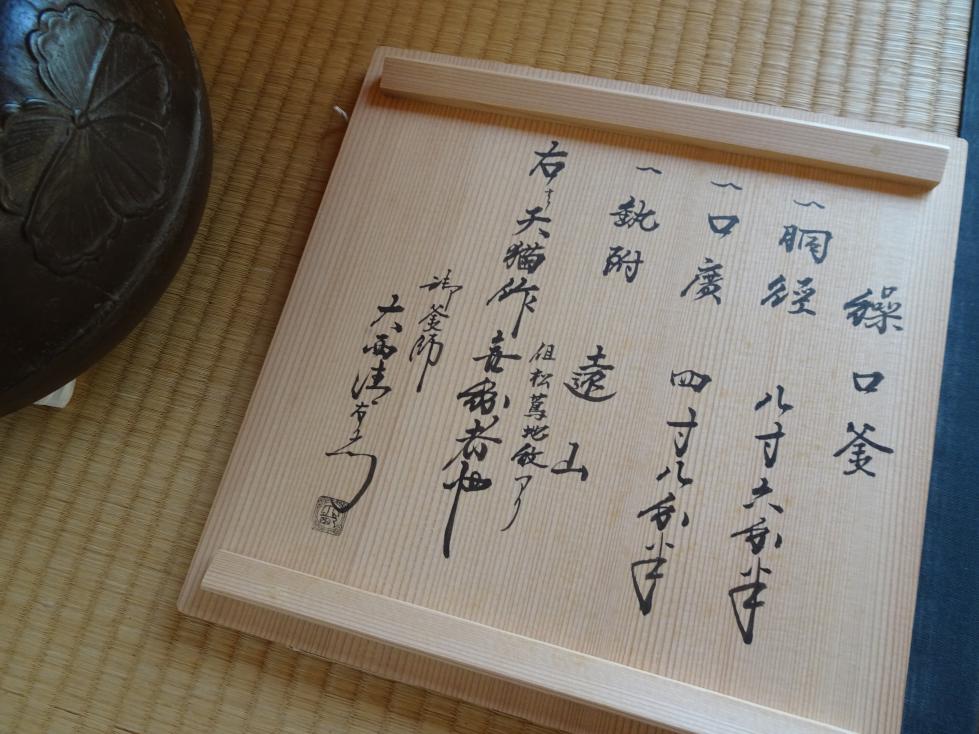 繰口釜
一胴徑 八寸六分半
一口廣 四寸八分半
一釻附 遠山
但松蔦地紋アリ
右者天猫作無紛者也
御釜師
大西清右衛門